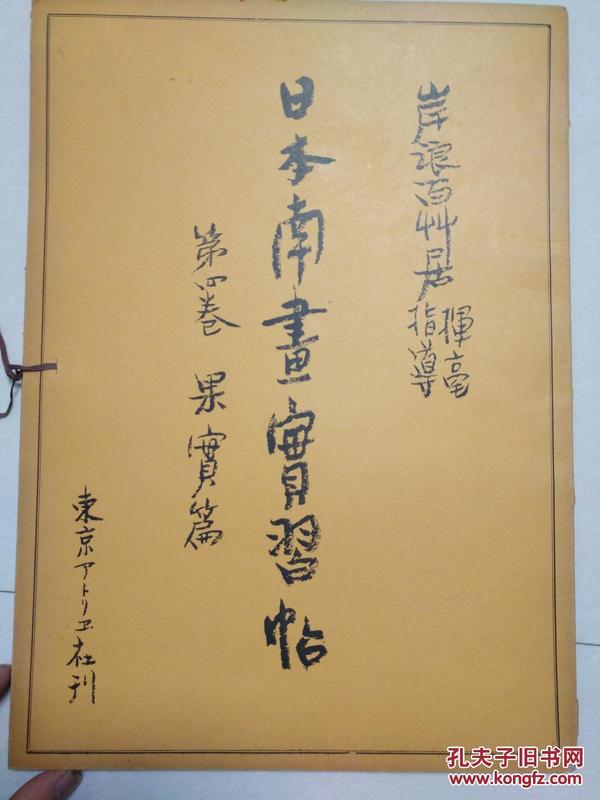 岸浪百艸居
揮毫
指導
日本南畫實習帖
第四卷 果實篇
東京アトリヱ社刊
孔夫子旧书网
www.kongfz.com